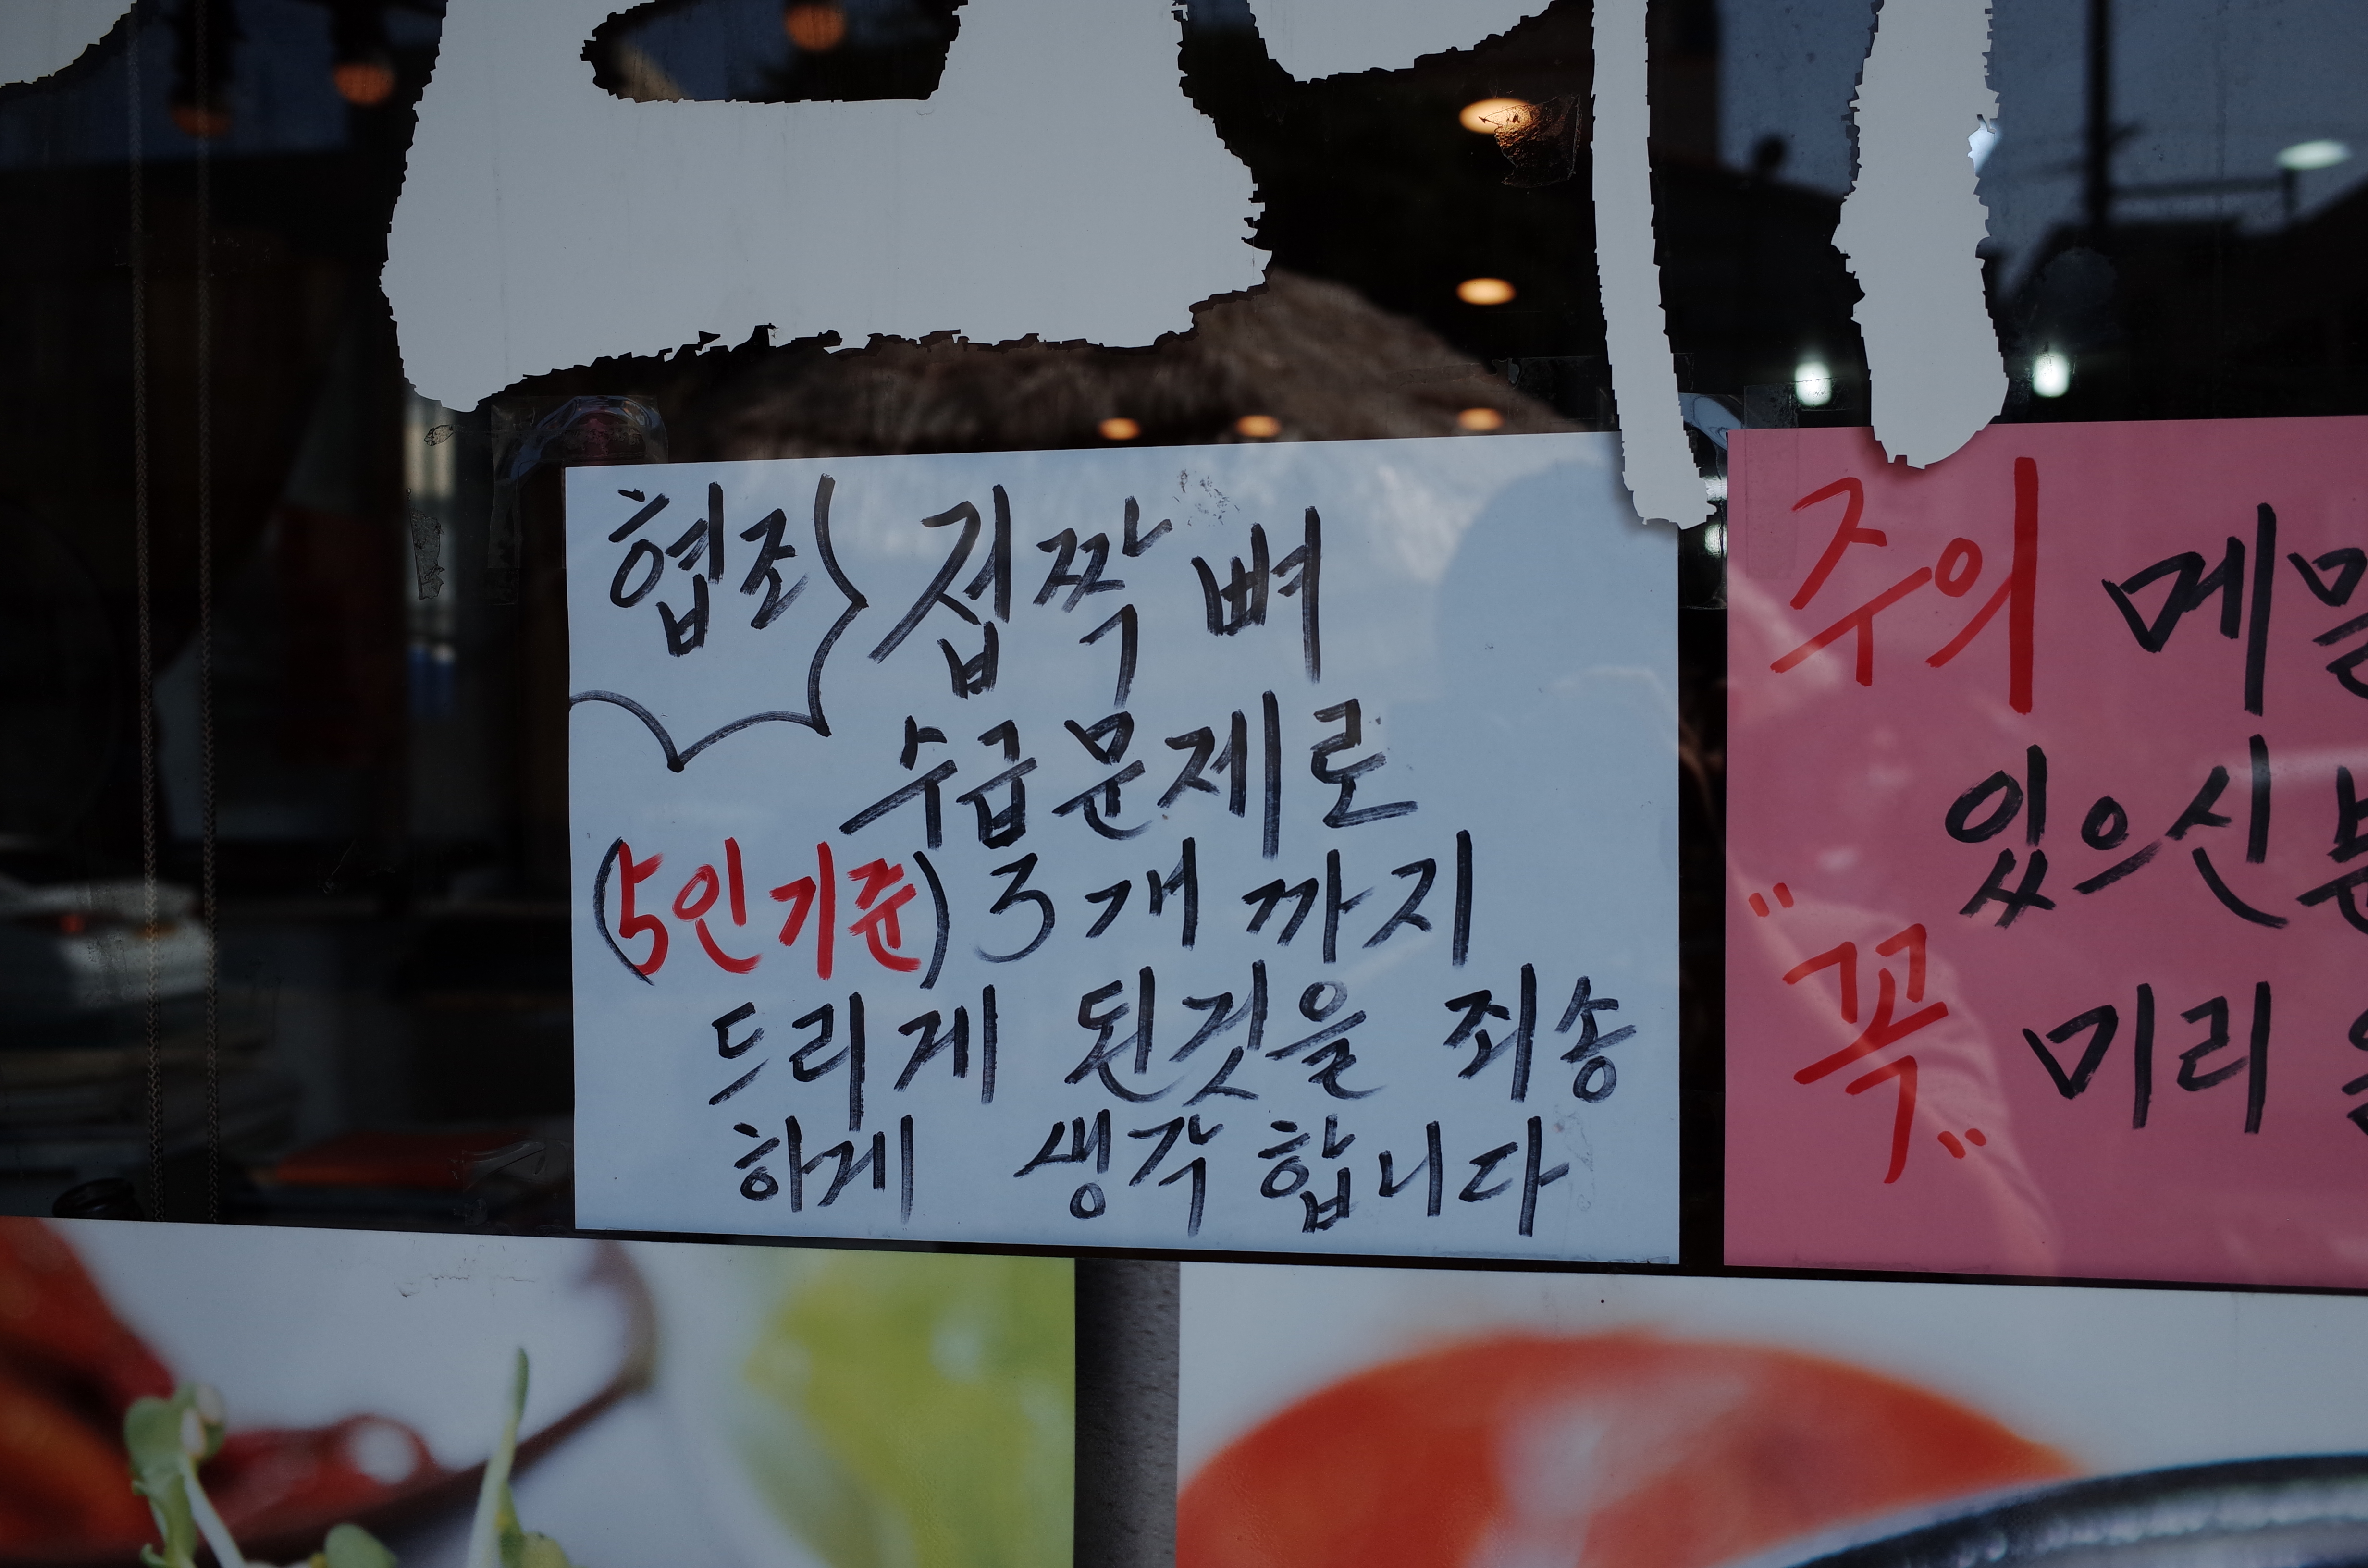 협조 접짝뼈
수급문제로
(5인기준) 3개 까지
드리게 된것을 죄송
하게 생각합니다
주의 메밀
있으신
"꼭" 미리